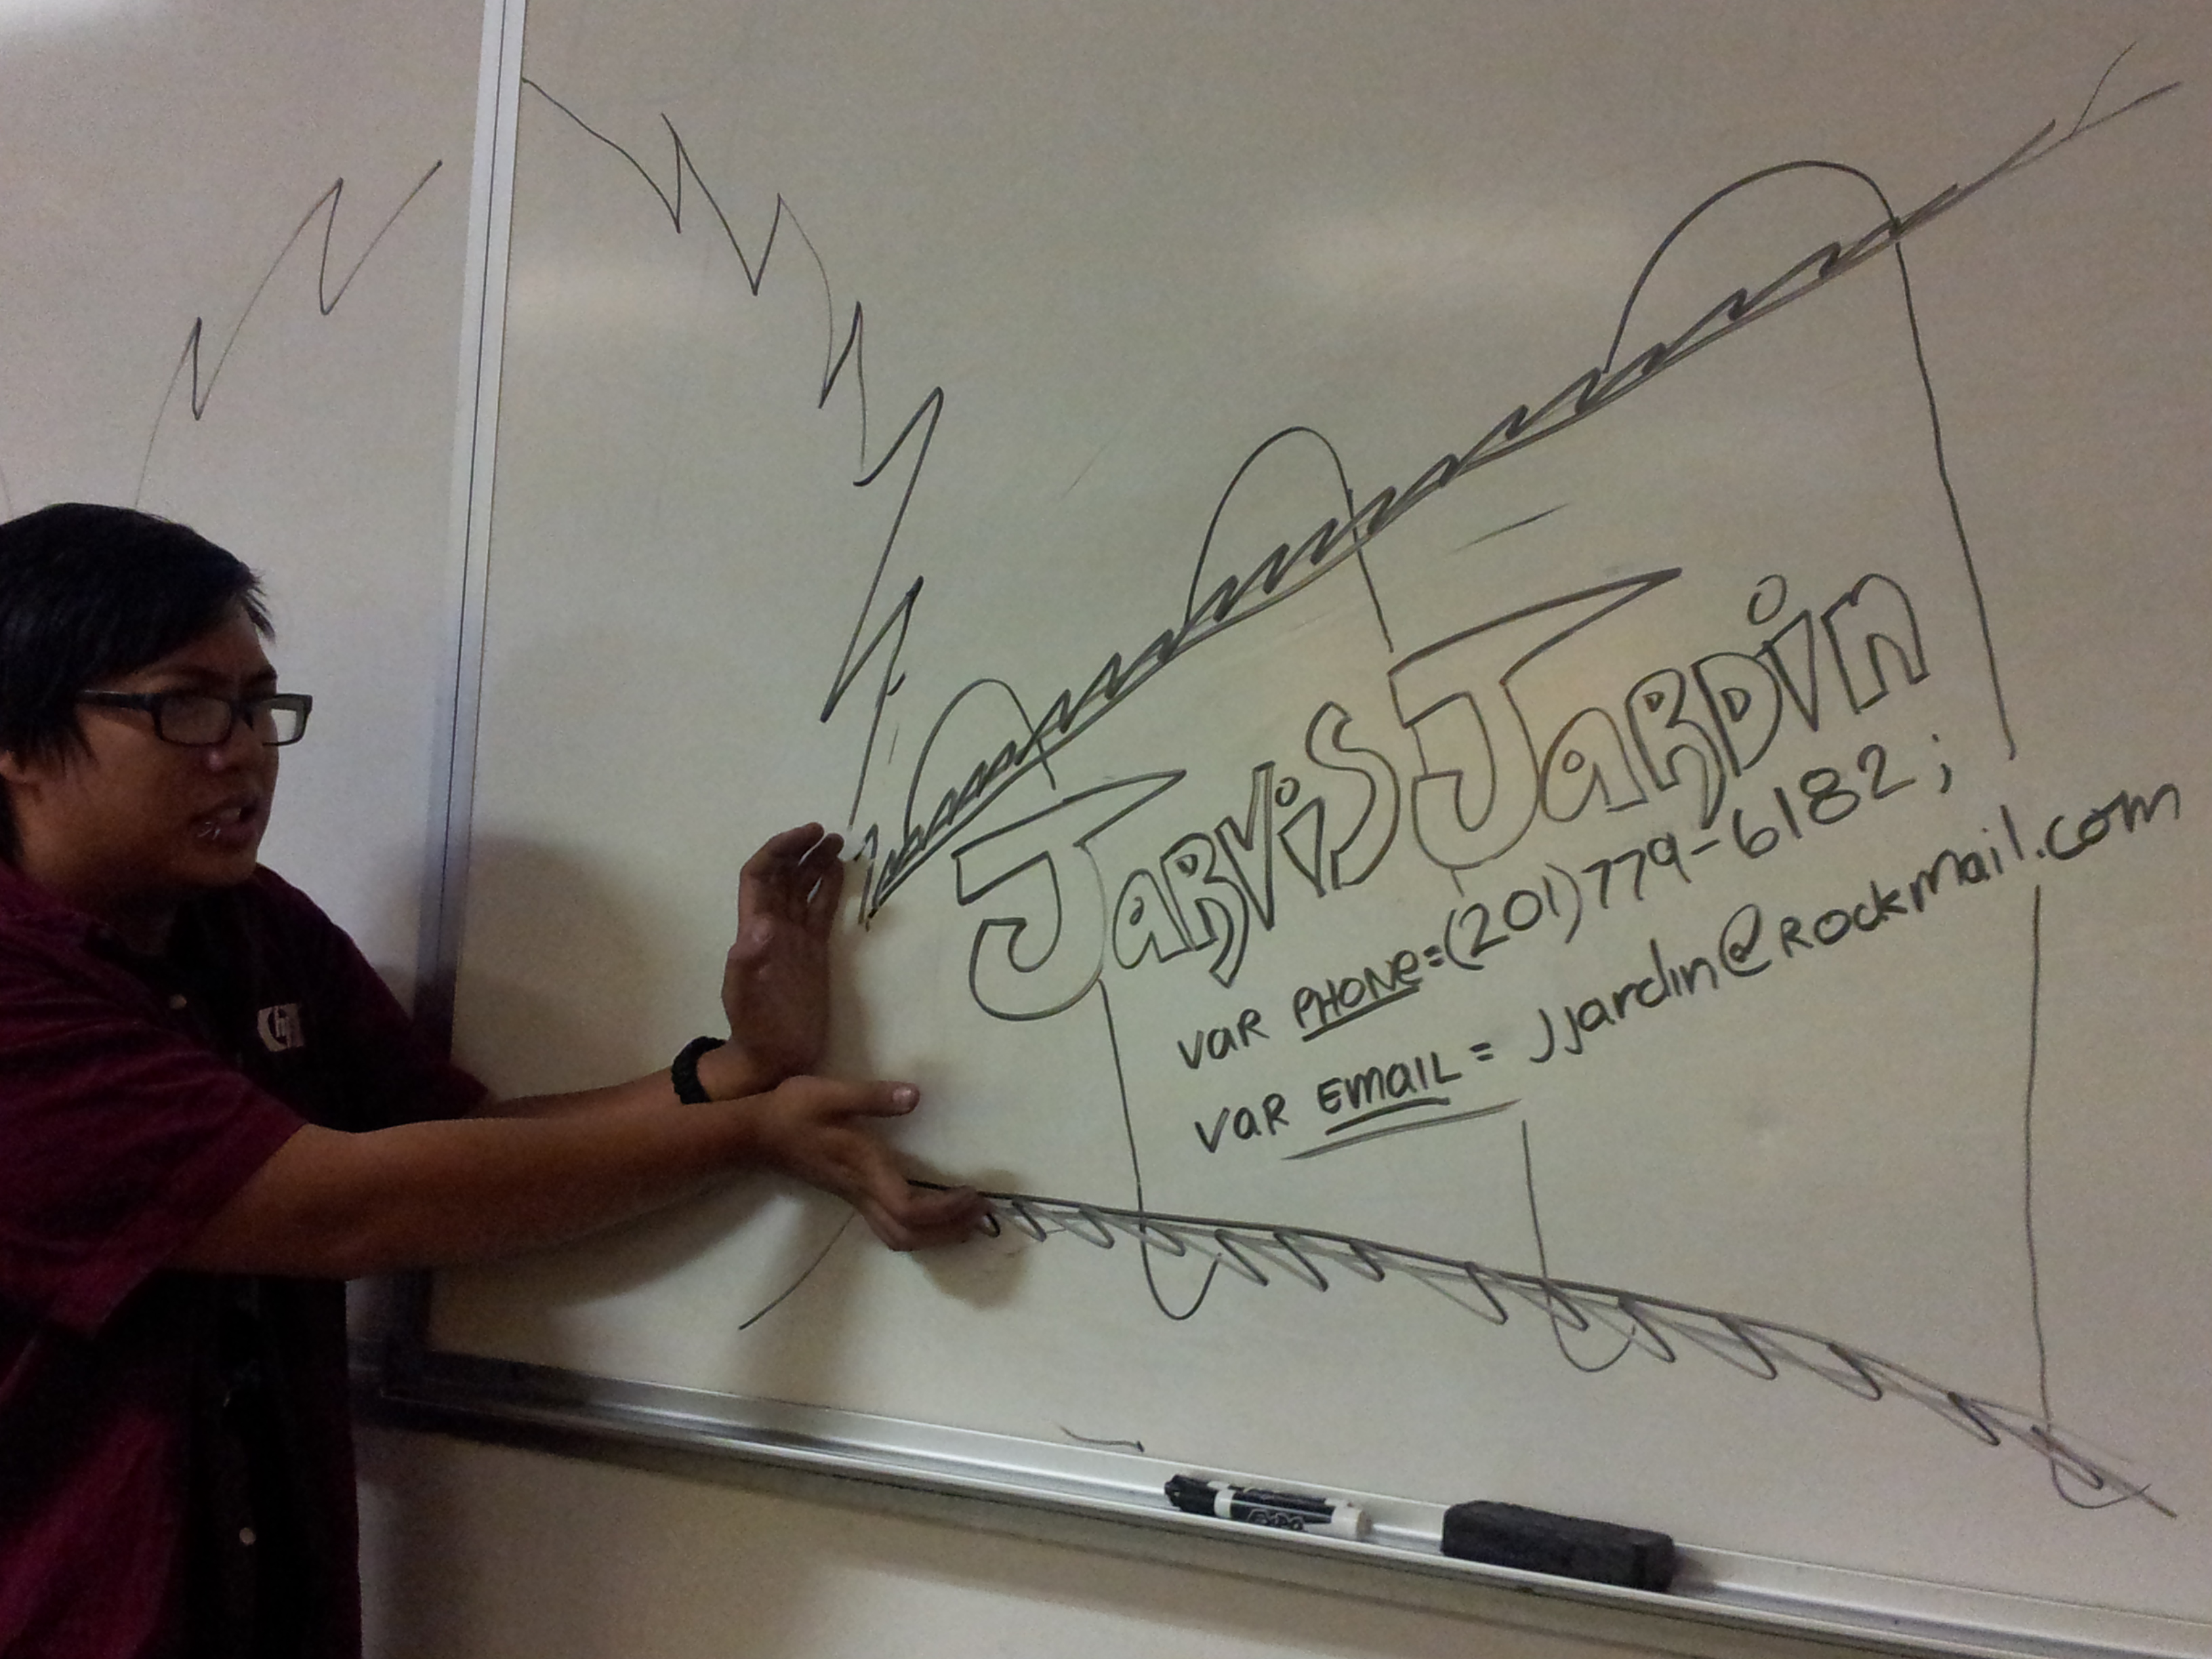 JARViS JARDin
VaR PHONe=(201)779-6182;
VaR EMaiL = jjardin@ROCKMail.com
hp
EXPO